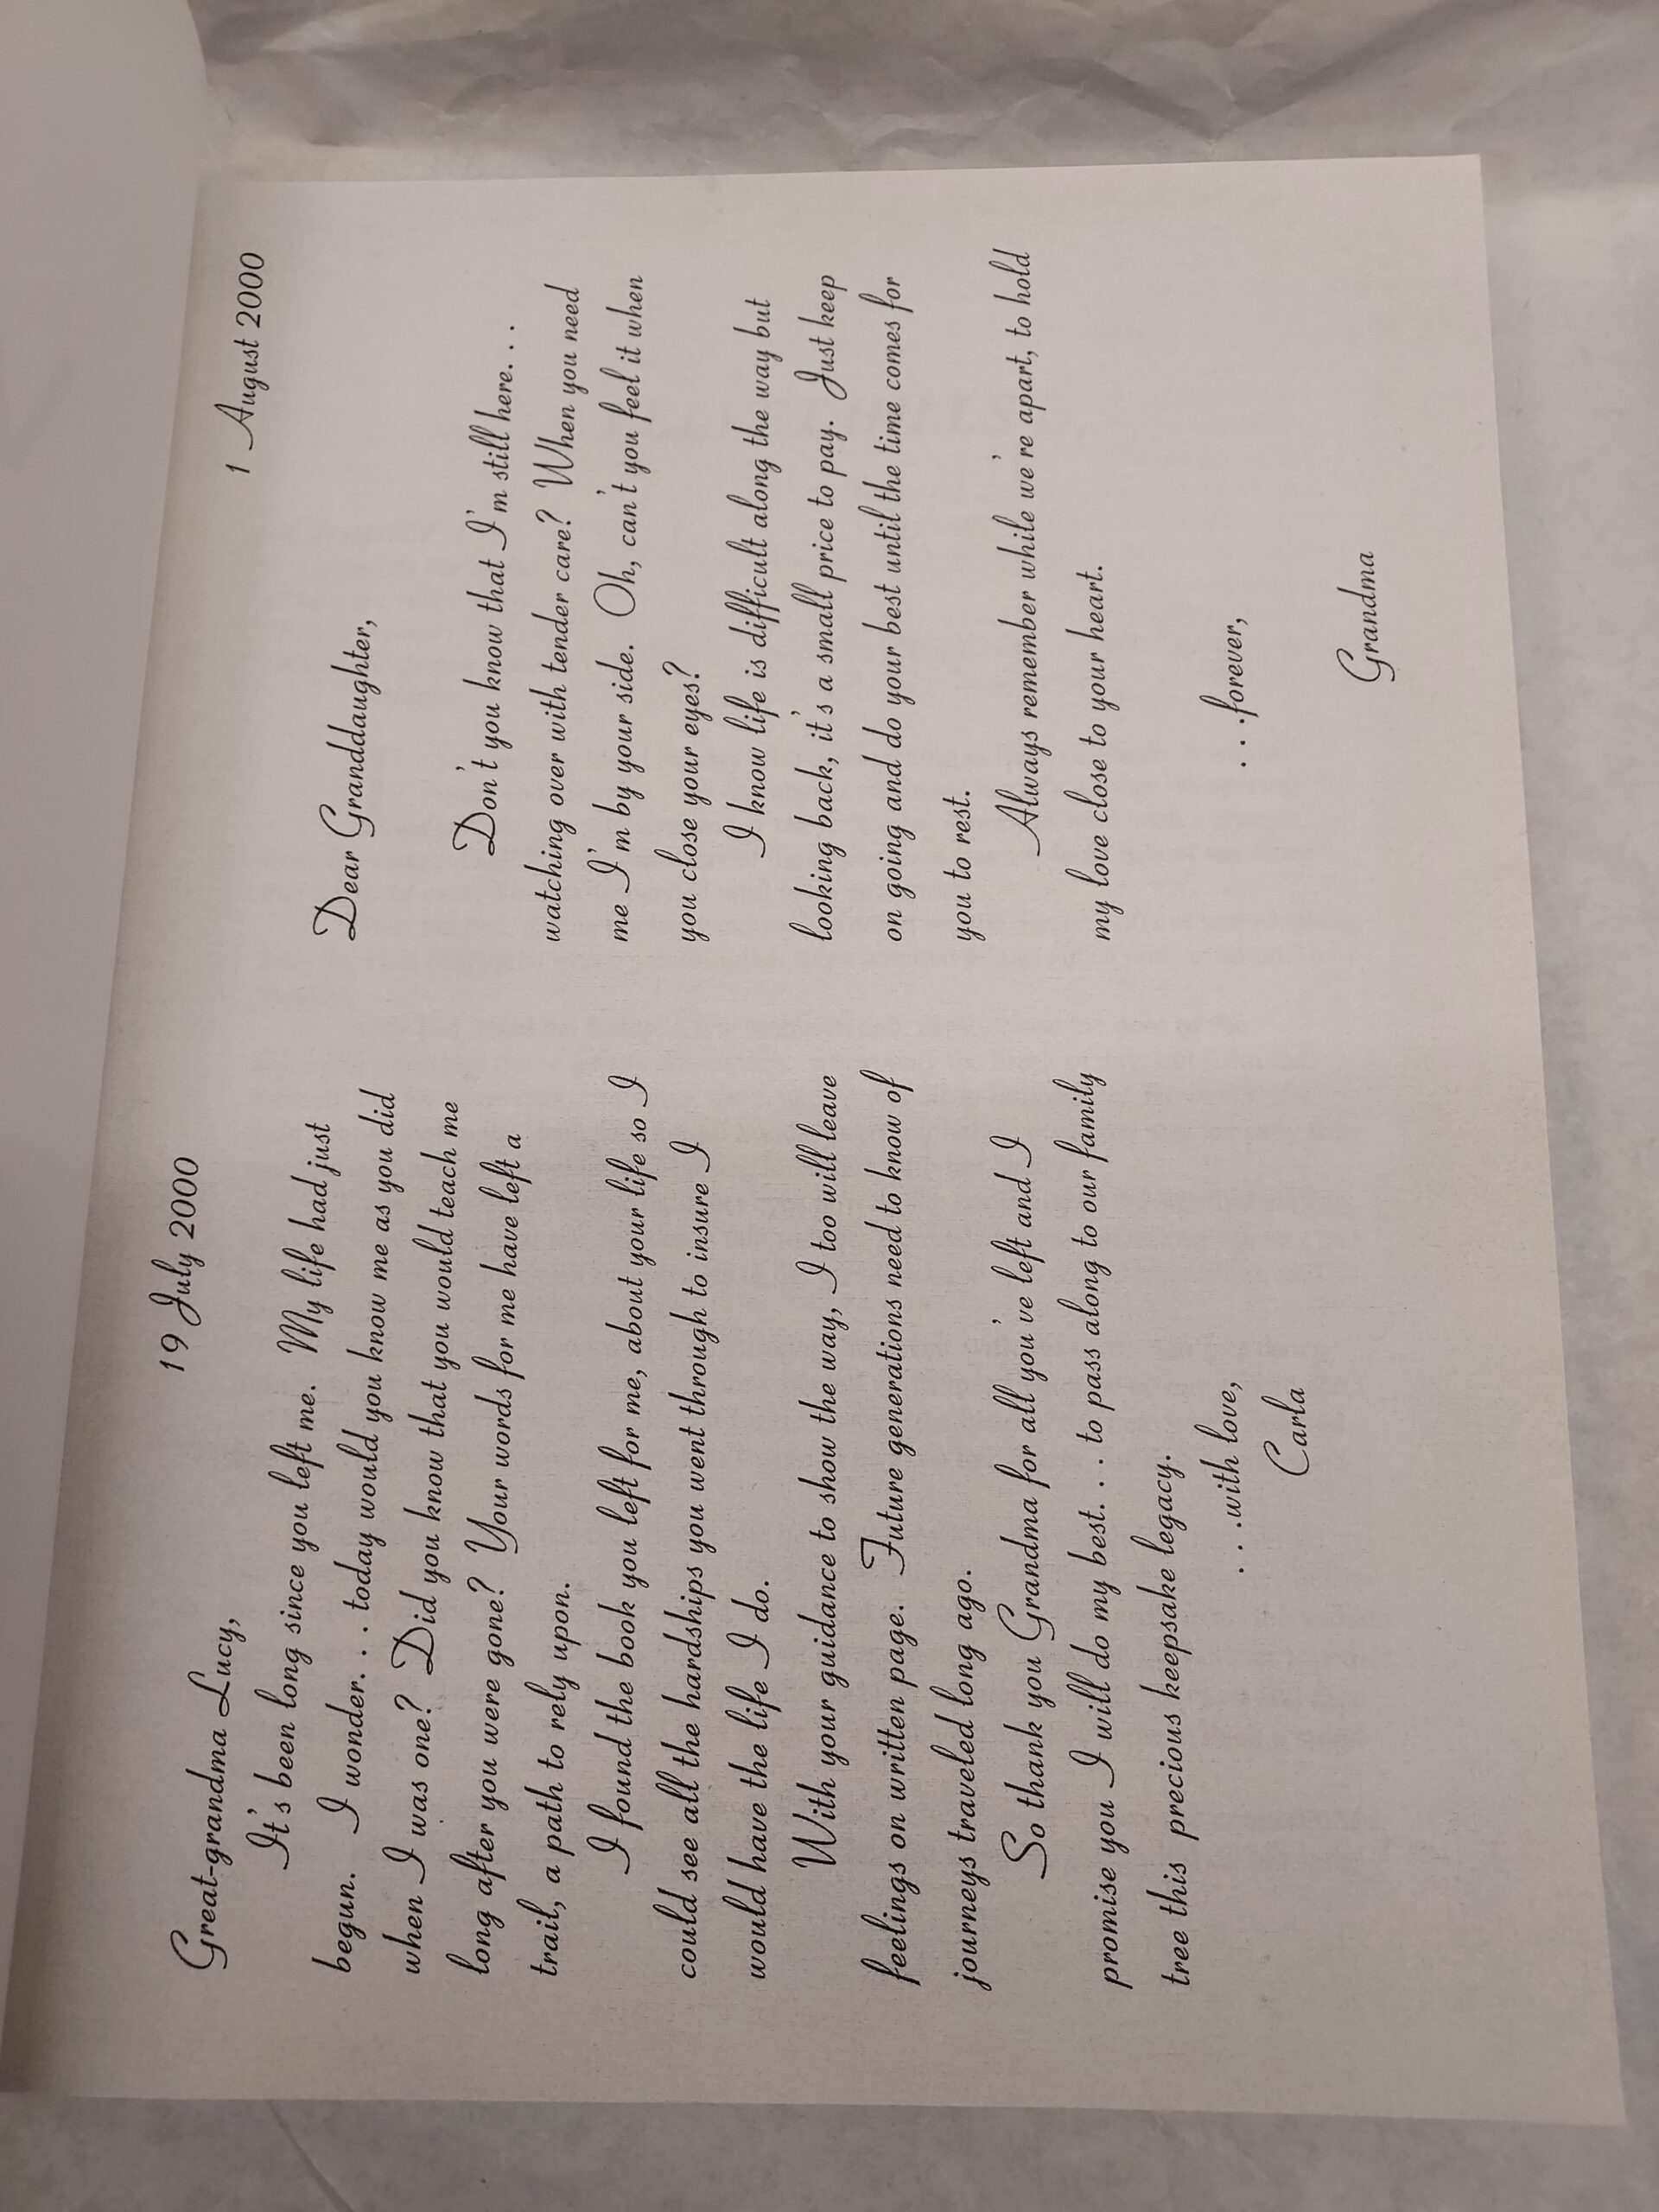 19 July 2000
Great-grandma Lucy,
It's been long since you left me. My life had just
begun. I wonder. . . today would you know me as you did
when I was one? Did you know that you would teach me
long after you were gone? Your words for me have left a
trail, a path to rely upon.
I found the book you left for me, about your life so I
could see all the hardships you went through to insure I
would have the life I do.
With your guidance to show the way, I too will leave
feelings on written page. Future generations need to know of
journeys traveled long ago.
So thank you Grandma for all you've left and I
promise you I will do my best. . . to pass along to our family
tree this precious keepsake legacy.
. . .with love,
Carla
1 August 2000
Dear Granddaughter,
Don't you know that I'm still here. . .
watching over with tender care? When you need
me I'm by your side. Oh, can't you feel it when
you close your eyes?
I know life is difficult along the way but
looking back, it's a small price to pay. Just keep
on going and do your best until the time comes for
you to rest.
Always remember while we're apart, to hold
my love close to your heart.
. . .forever,
Grandma